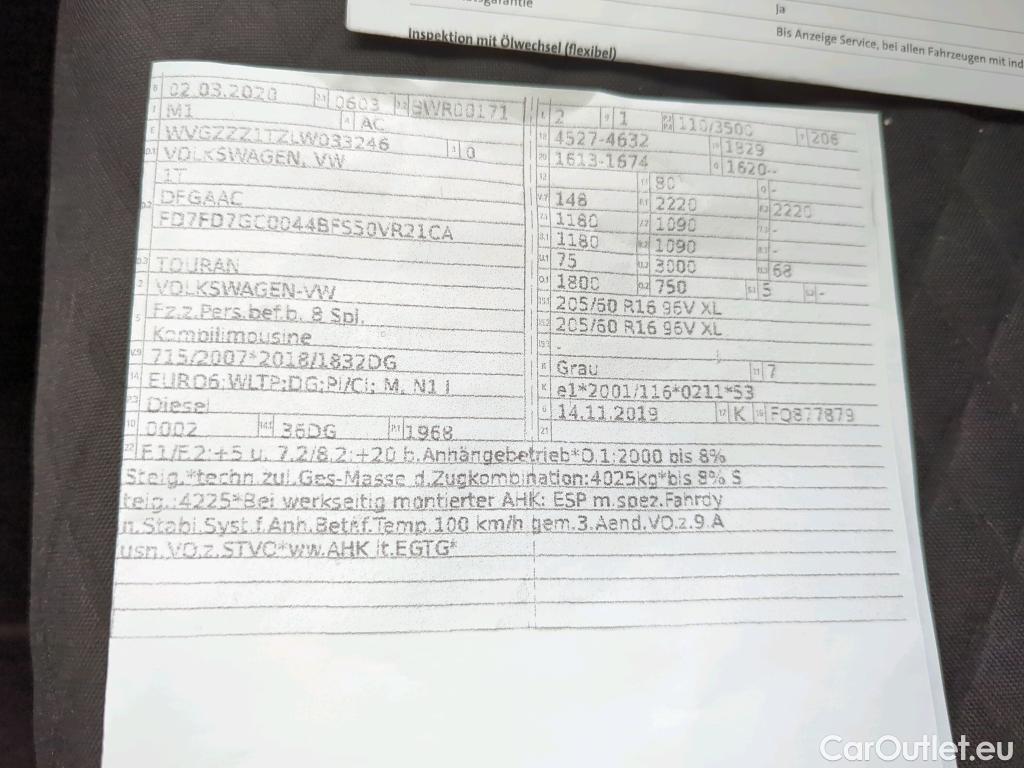 Ja
Inspektion mit Ölwechsel (flexibel)
Bis Anzeige Service, bei allen Fahrzeugen mit ind
B 02.03.2020 2.1 0603 2.2 BWR00171
J M1 4 AC
E WVGZZZ1TZLW033246 3 0
D.1 VOLKSWAGEN, VW
1T
D.2 DFGAAC
FD7FD7GC0044BFS50VR21CA
D.3 TOURAN
2 VOLKSWAGEN-VW
5 Fz.z.Pers.bef.b. 8 Spl.
Kombilimousine
V.9 715/2007*2018/1832DG
14 EURO6;WLTP;DG;PI/CI; M, N1 I
P.3 Diesel
10 0002 14.1 36DG P.1 1968
L 2 9 1 P.2 P.4 110/3500 T 206
18 4527-4632 19 1829
20 1613-1674 G 1620--
12 13 80 Q -
V.7 148 F.1 2220 F.2 2220
7.1 1180 7.2 1090 7.3 -
8.1 1180 8.2 1090 8.3 -
U.1 75 U.2 3000 U.3 68
O.1 1800 O.2 750 S.1 5 S.2 -
15.1 205/60 R16 96V XL
15.2 205/60 R16 96V XL
15.3 -
R Grau 11 7
K e1*2001/116*0211*53
6 14.11.2019 17 K 16 FQ877879
21
22 F.1/F.2:+5 u. 7.2/8.2:+20 b.Anhängebetrieb*O.1:2000 bis 8%
Steig.*techn.zul.Ges-Masse d.Zugkombination:4025kg*bis 8% S
teig.:4225*Bei werkseitig montierter AHK: ESP m.spez.Fahrdy
n.Stabi.Syst.f.Anh.Betr.f.Temp.100 km/h gem.3.Aend.VO.z.9.A
usn.VO.z.STVO*ww.AHK lt.EGTG*
CarOutlet.eu